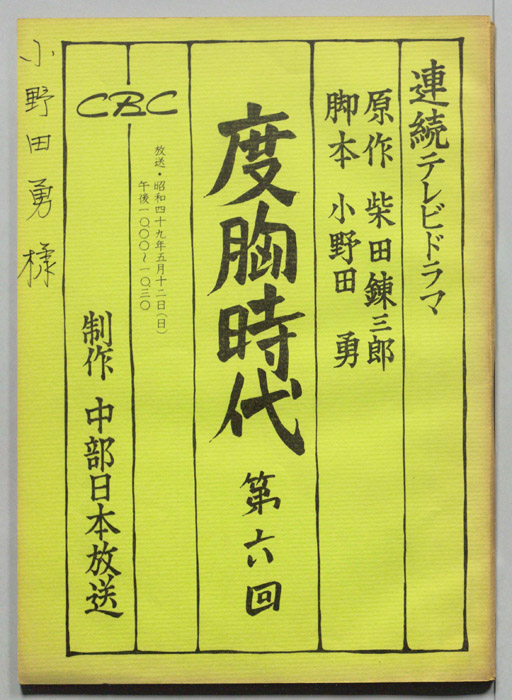 連続テレビドラマ
原作 柴田錬三郎
脚本 小野田 勇
度胸時代 第六回
放送・昭和四十九年五月十二日(日)
午後一〇、〇〇〜一〇、三〇
CBC
制作 中部日本放送
小野田勇様